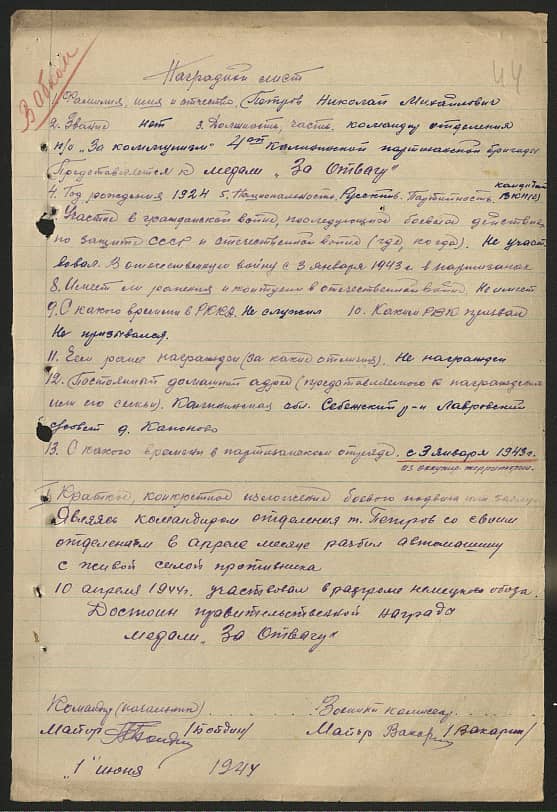 В обком
44
Наградной лист
Фамилия, имя и отчество. Петров Николай Михайлович
2. Звание нет 3. Должность, часть. командир отделения
п/о "За коммунизм" 4ой Калининской партизанской бригады
Представляется к медали "За Отвагу"
4. Год рождения 1924 5. Национальность. Русский 6. Партийность. кандидат
ВКП(б)
Участие в гражданской войне, последующих боевых действиях
по защите СССР и отечественной войне (где, когда). Не участ-
вовал. В отечественную войну с 3 января 1943 г. в партизанах
8. Имеет ли ранения и контузии в отечественной войне. Не имеет
9. С какого времени в РККА. Не служил 10. Каким РВК призван
Не призывался.
11. Чем ранее награжден (за какие отличия). Не награжден
12. Постоянный домашний адрес (представляемого к награждению
или его семьи). Калининская обл. Себежский р-н Лавровский
с/совет д. Капоново
13. С какого времени в партизанском отряде. с 3 января 1943 г.
из оккупир. территории.
I. Краткое, конкретное изложение боевого подвига или заслуг
Являясь командиром отделения т. Петров со своим
отделением в апреле месяце разбил автомашину
с живой силой противника
10 апреля 1944 г. участвовал в разгроме немецкого обоза.
Достоин правительственной награда
медали "За Отвагу"
Командир (начальник)
Военный комиссар
Майор /Бойдин/
Майор Вакарин /Вакарин/
"1" июня 1944